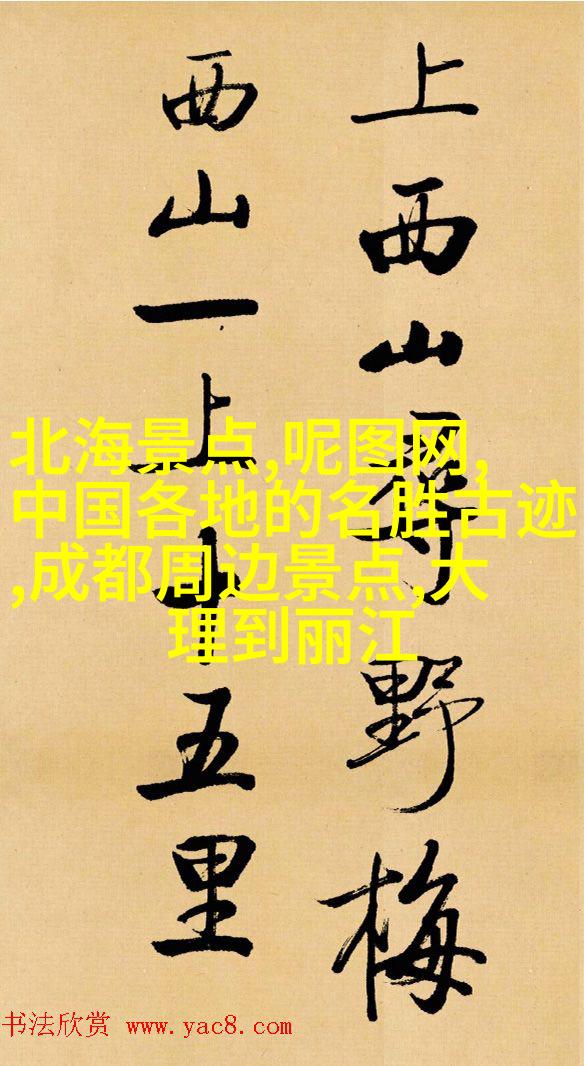 上西山尋野梅
西山一上十五里
北海景点,呢图网,
中国各地的名胜古迹
,成都周边景点,大
理到丽江
书法欣赏 www.yac8.com